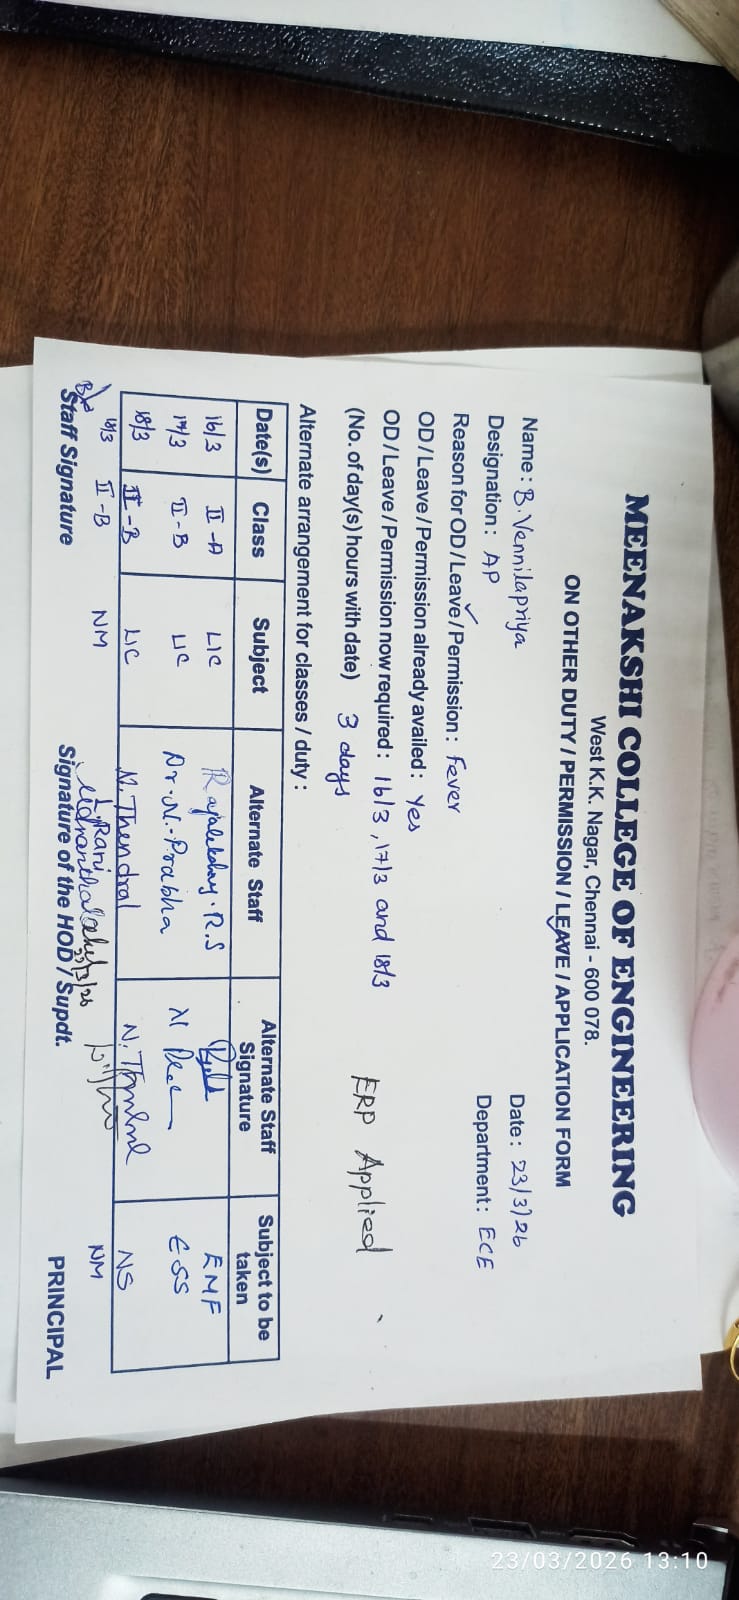 MEENAKSHI COLLEGE OF ENGINEERING
West K.K. Nagar, Chennai - 600 078.
ON OTHER DUTY / PERMISSION / LEAVE / APPLICATION FORM
Name : B. Vennilapriya Date : 23/3/26
Designation : AP Department : ECE
Reason for OD / Leave / Permission : Fever
OD / Leave / Permission already availed : Yes
OD / Leave / Permission now required : 16/3, 17/3 and 18/3
(No. of day(s) hours with date) 3 days ERP Applied
Alternate arrangement for classes / duty :
Date(s) Class Subject Alternate Staff Alternate Staff Signature Subject to be taken
16/3 II-A LIC R.S EMF
17/3 II-B LIC Dr. N. Prabha ESS
18/3 II-B LIC N. Thendral N. NS
18/3 II-B NM Rani NM
23/3/26
Staff Signature Signature of the HOD / Supdt. PRINCIPAL
23/03/2026 13:10